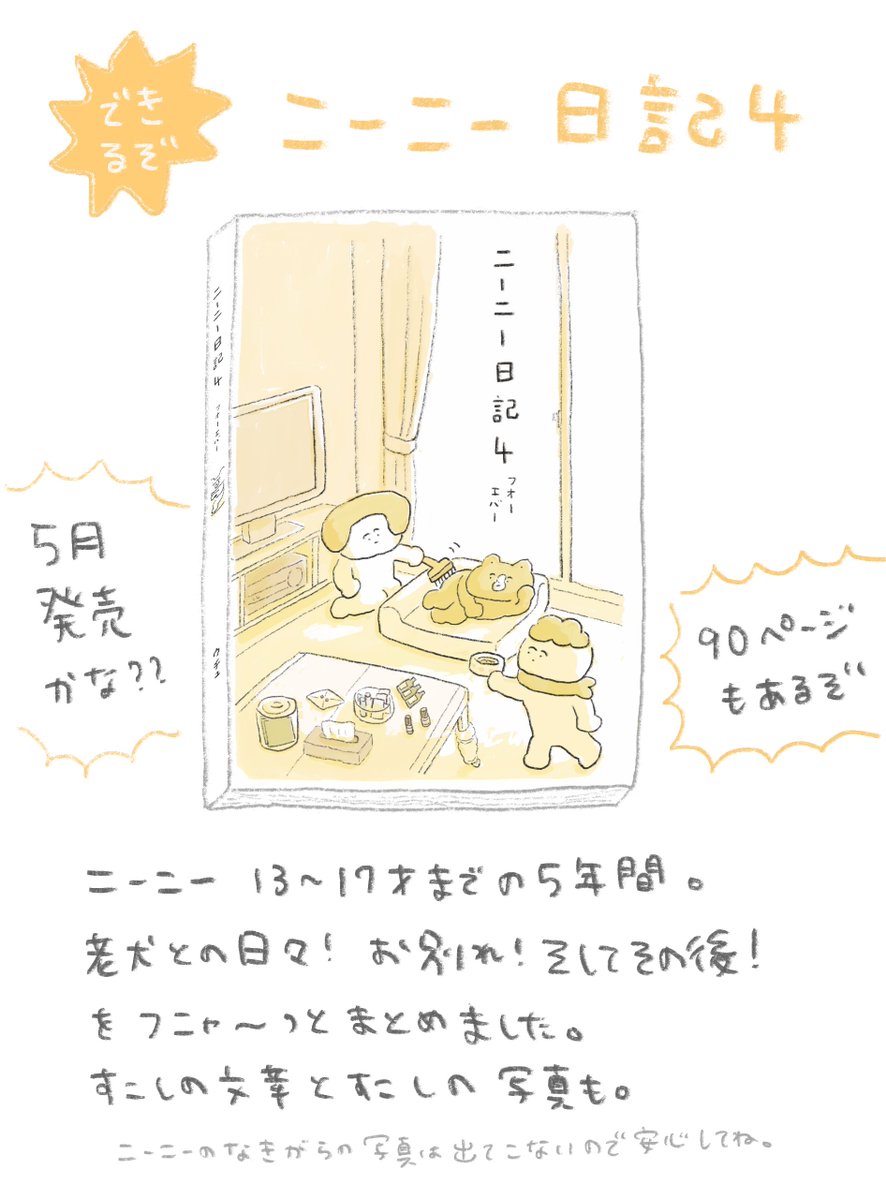 でき
るぞ
ニーニー日記4
ニーニー日記4
フォー
エバー
ニーニー日記4 フォーエバー
5月
発売
かな??
90ページ
もあるぞ
ニーニー 13〜17才までの5年間。
老犬との日々! お別れ! そしてその後!
をフニャ〜っとまとめました。
すこしの文章とすこしの写真も。
ニーニーのなきがらの写真は出てこないので安心してね。